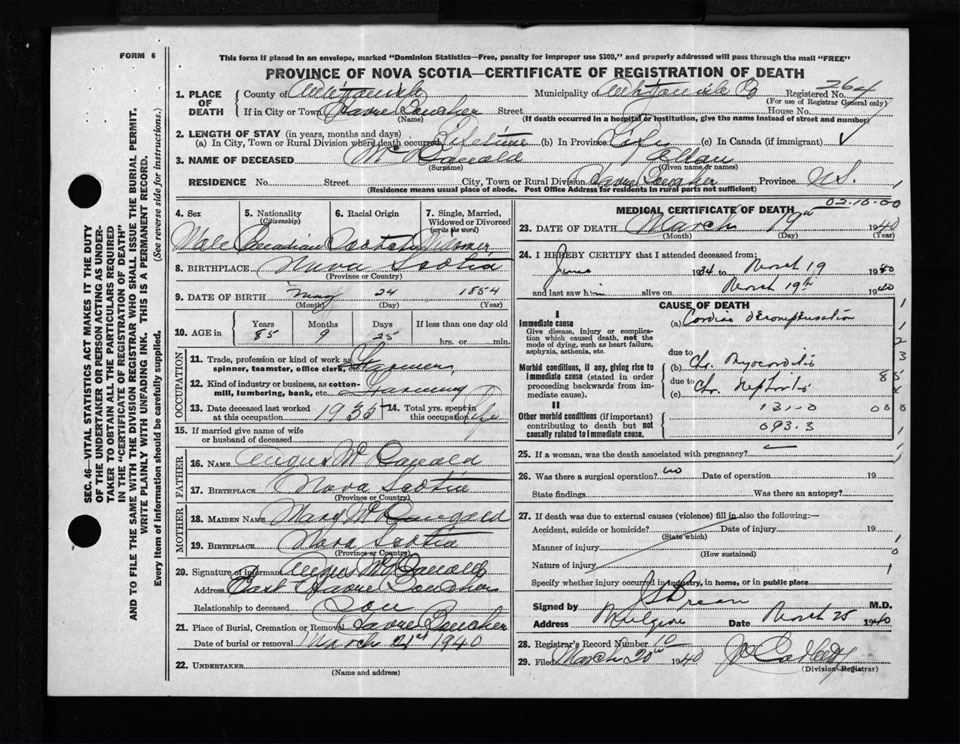 FORM 6
This form if placed in an envelope, marked "Dominion Statistics—Free, penalty for improper use $300," and properly addressed will pass through the mail "FREE"
PROVINCE OF NOVA SCOTIA—CERTIFICATE OF REGISTRATION OF DEATH
1. PLACE OF DEATH
County of Antigonish Municipality of Antigonish Co Registered No. 264
(For use of Registrar General only)
If in City or Town Havre Boucher Street House No.
(Name) (If death occurred in a hospital or institution, give the name instead of street and number)
2. LENGTH OF STAY (in years, months and days)
(a) In City, Town or Rural Division where death occurred Lifetime (b) In Province Life (c) In Canada (if immigrant)
3. NAME OF DECEASED McDonald Allan
(Surname) (Given name or names)
RESIDENCE No. Street City, Town or Rural Division Havre Boucher Province N.S.
(Residence means usual place of abode. Post Office Address for residents in rural parts not sufficient)
4. Sex 5. Nationality (Citizenship) 6. Racial Origin 7. Single, Married, Widowed or Divorced (write the word)
Male Canadian Scotch Widower
8. BIRTHPLACE Nova Scotia
(Province or Country)
9. DATE OF BIRTH May 24 1854
(Month) (Day) (Year)
10. AGE in Years Months Days If less than one day old
85 9 25 hrs. or min.
OCCUPATION
11. Trade, profession or kind of work as spinner, teamster, office clerk, etc. Farmer
12. Kind of industry or business, as cotton-mill, lumbering, bank, etc. Farming
13. Date deceased last worked at this occupation 1935 14. Total yrs. spent in this occupation Life
15. If married give name of wife or husband of deceased
FATHER
16. NAME Angus McDonald
17. BIRTHPLACE Nova Scotia
(Province or Country)
MOTHER
18. MAIDEN NAME Mary
19. BIRTHPLACE Nova Scotia
(Province or Country)
20. Signature of informant Angus McDonald
Address East Havre Boucher
Relationship to deceased Son
21. Place of Burial, Cremation or Removal Havre Boucher
Date of burial or removal March 21st 1940
22. UNDERTAKER
(Name and address)
02-10-00
MEDICAL CERTIFICATE OF DEATH
23. DATE OF DEATH March 19th 1940
(Month) (Day) (Year)
24. I HEREBY CERTIFY that I attended deceased from:
June 1934 to March 19 1940
and last saw him alive on March 19th 1940
CAUSE OF DEATH
I
Immediate cause
Give disease, injury or complication which caused death, not the mode of dying, such as heart failure, asphyxia, asthenia, etc.
(a) Cardiac decompensation
due to
Morbid conditions, if any, giving rise to immediate cause (stated in order proceeding backwards from immediate cause).
(b) Chr. Myocarditis
due to
(c) Chr. Nephritis
II
Other morbid conditions (if important) contributing to death but not causally related to immediate cause.
131-0
093.3
25. If a woman, was the death associated with pregnancy?
26. Was there a surgical operation? no Date of operation 19
State findings Was there an autopsy?
27. If death was due to external causes (violence) fill in also the following:—
Accident, suicide or homicide? Date of injury 19
(State which)
Manner of injury
(How sustained)
Nature of injury
Specify whether injury occurred in industry, in home, or in public place
Signed by M.D.
Address Mulgrave Date March 25 1940
28. Registrar's Record Number 10
29. Filed March 20th 1940
(Division Registrar)
SEC. 46—VITAL STATISTICS ACT MAKES IT THE DUTY OF THE UNDERTAKER OR PERSON ACTING AS UNDERTAKER TO OBTAIN ALL THE PARTICULARS REQUIRED IN THE "CERTIFICATE OF REGISTRATION OF DEATH" AND TO FILE THE SAME WITH THE DIVISION REGISTRAR WHO SHALL ISSUE THE BURIAL PERMIT.
WRITE PLAINLY WITH UNFADING INK. THIS IS A PERMANENT RECORD.
Every item of information should be carefully supplied. (See reverse side for instructions.)